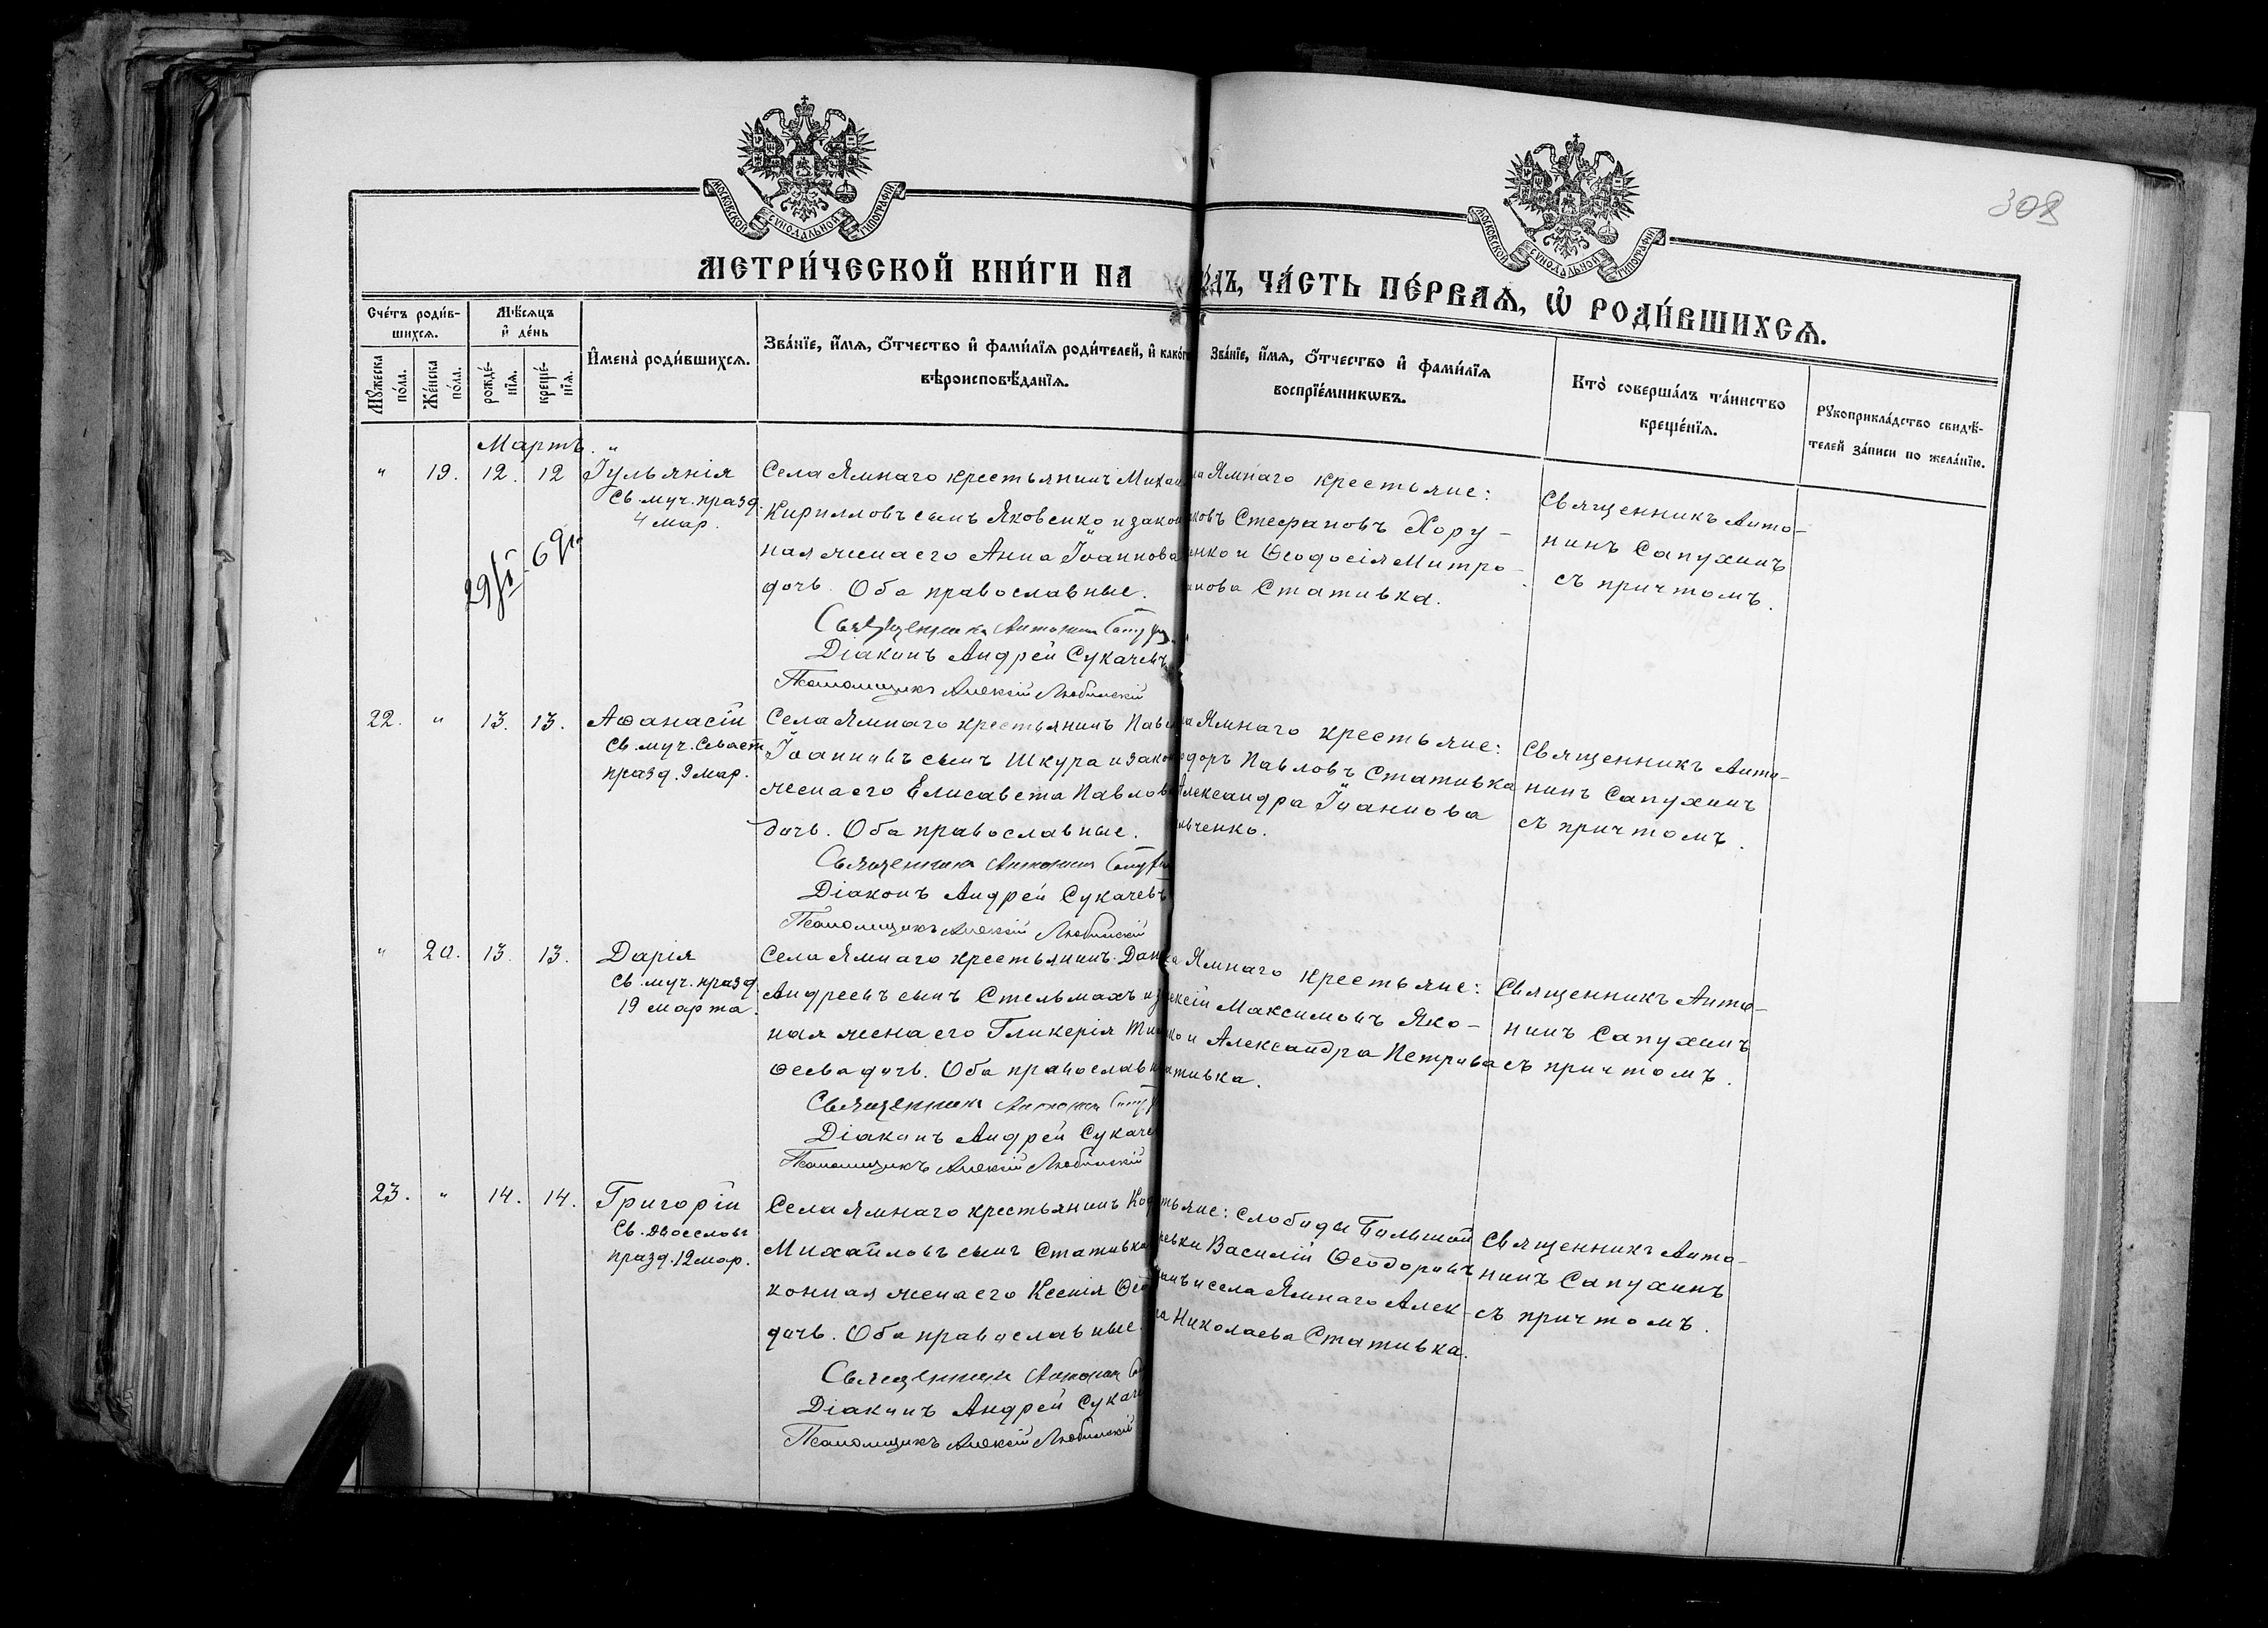 308
МОСКОВСКОЙ СѴНОДАЛЬНОЙ ТИПОГРАФІИ
МОСКОВСКОЙ СѴНОДАЛЬНОЙ ТИПОГРАФІИ
МЕТРИ́ЧЕСКОЙ КНИ́ГИ НА
ЧА́СТЬ ПЕ́РВАѦ, Ѡ҆ РОДИ́ВШИХСѦ.
Сче́тъ роди́в-
шихсѧ.
Мѣ́сѧцъ
и҆ де́нь
Мꙋ́жеска
по́ла.
Же́нска
по́ла.
рожде́-
нїѧ.
креще́-
нїѧ.
И҆мена̀ роди́вшихсѧ.
Зва́нїе, и҆́мѧ, ѻ҆́тчество и҆ фами́лїѧ роди́телей, и҆ како́гѡ
вѣроисповѣ́данїѧ.
Зва́нїе, и҆́мѧ, ѻ҆́тчество и҆ фами́лїѧ
воспрїе́мникѡвъ.
Кто̀ соверша́лъ та́инство
креще́нїѧ.
Рꙋкоприкла́дство свидѣ́-
телей за́писи по жела́нїю.
Мартъ.
" 19. 12. 12 Іульянія
Св. муч. празд.
4 мар.
Села Ямнаго крестьянинъ Михаи
Кирилловъ сынъ Яковенко и закон
ная жена его Анна Іоаннова
дочь. Оба православные.
Священникъ Антонин Сапухин
Діаконъ Андрей Сукачевъ
Псаломщикъ Алексій Любинскій
Ямнаго крестьяне:
ковъ Стефановъ Хору-
енко и Ѳеодосія Митро-
анова Стативка.
Священникъ Анто-
нинъ Сапухинъ
съ причтомъ.
22. " 13. 13. Аѳанасій
Св. муч. Севаст
празд. 9 мар.
Села Ямнаго крестьянинъ Павел
Іоанновъ сынъ Шкура и закон
жена его Елисавета Павлова
дочь. Оба православные.
Священникъ Антонин Сапухин
Діаконъ Андрей Сукачевъ
Псаломщикъ Алексій Любинскій
Ямнаго крестьяне:
одоръ Павловъ Стативка
Александра Іоаннова
вченко.
Священникъ Анто-
нинъ Сапухинъ
съ причтомъ.
" 20. 13. 13. Дарія
Св. муч. празд.
19 марта.
Села Ямнаго крестьянинъ Дан
Андреевъ сынъ Стельмахъ и з
ная жена его Гликерія Тим
ѳеева дочь. Оба православн
Священникъ Антонин Сапух
Діаконъ Андрей Сукаче
Псаломщикъ Алексій Любинскій
Ямнаго крестьяне:
ексій Максимовъ Яко-
ко и Александра Петрова
ативка.
Священникъ Анто-
нинъ Сапухинъ
съ причтомъ.
23. " 14. 14. Григорій
Св. Двоеслов
празд. 12 мар.
Села Ямнаго крестьянинъ Ко
Михайловъ сынъ Стативка
конная жена его Ксенія Ѳео
дочь. Оба православные.
Священникъ Антонин
Діаконъ Андрей Сукаче
Псаломщикъ Алексій Любинскій
тьяне: слободы Большой
ревки Василій Ѳеодоровъ
и села Ямнаго Алек-
ра Николаева Стативка.
Священникъ Анто-
нинъ Сапухинъ
съ причтомъ.